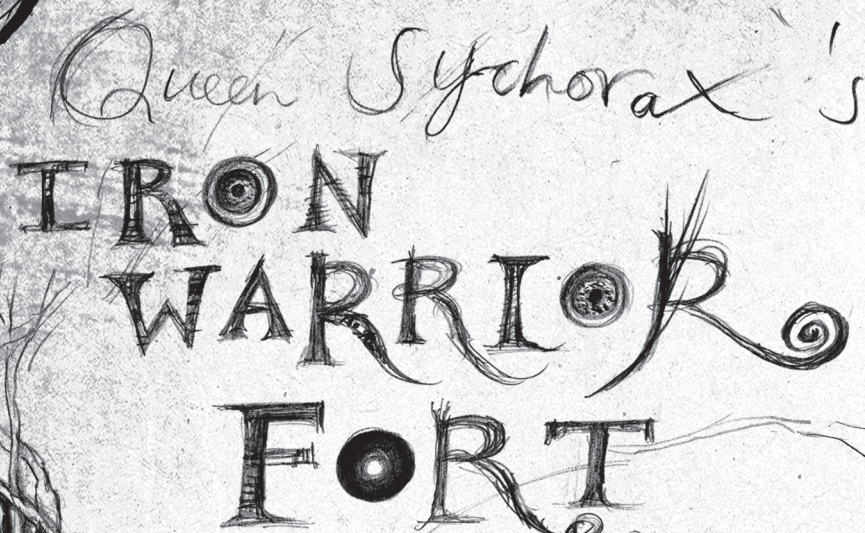 Queen Sychorax's
IRON
WARRIOR
FORT